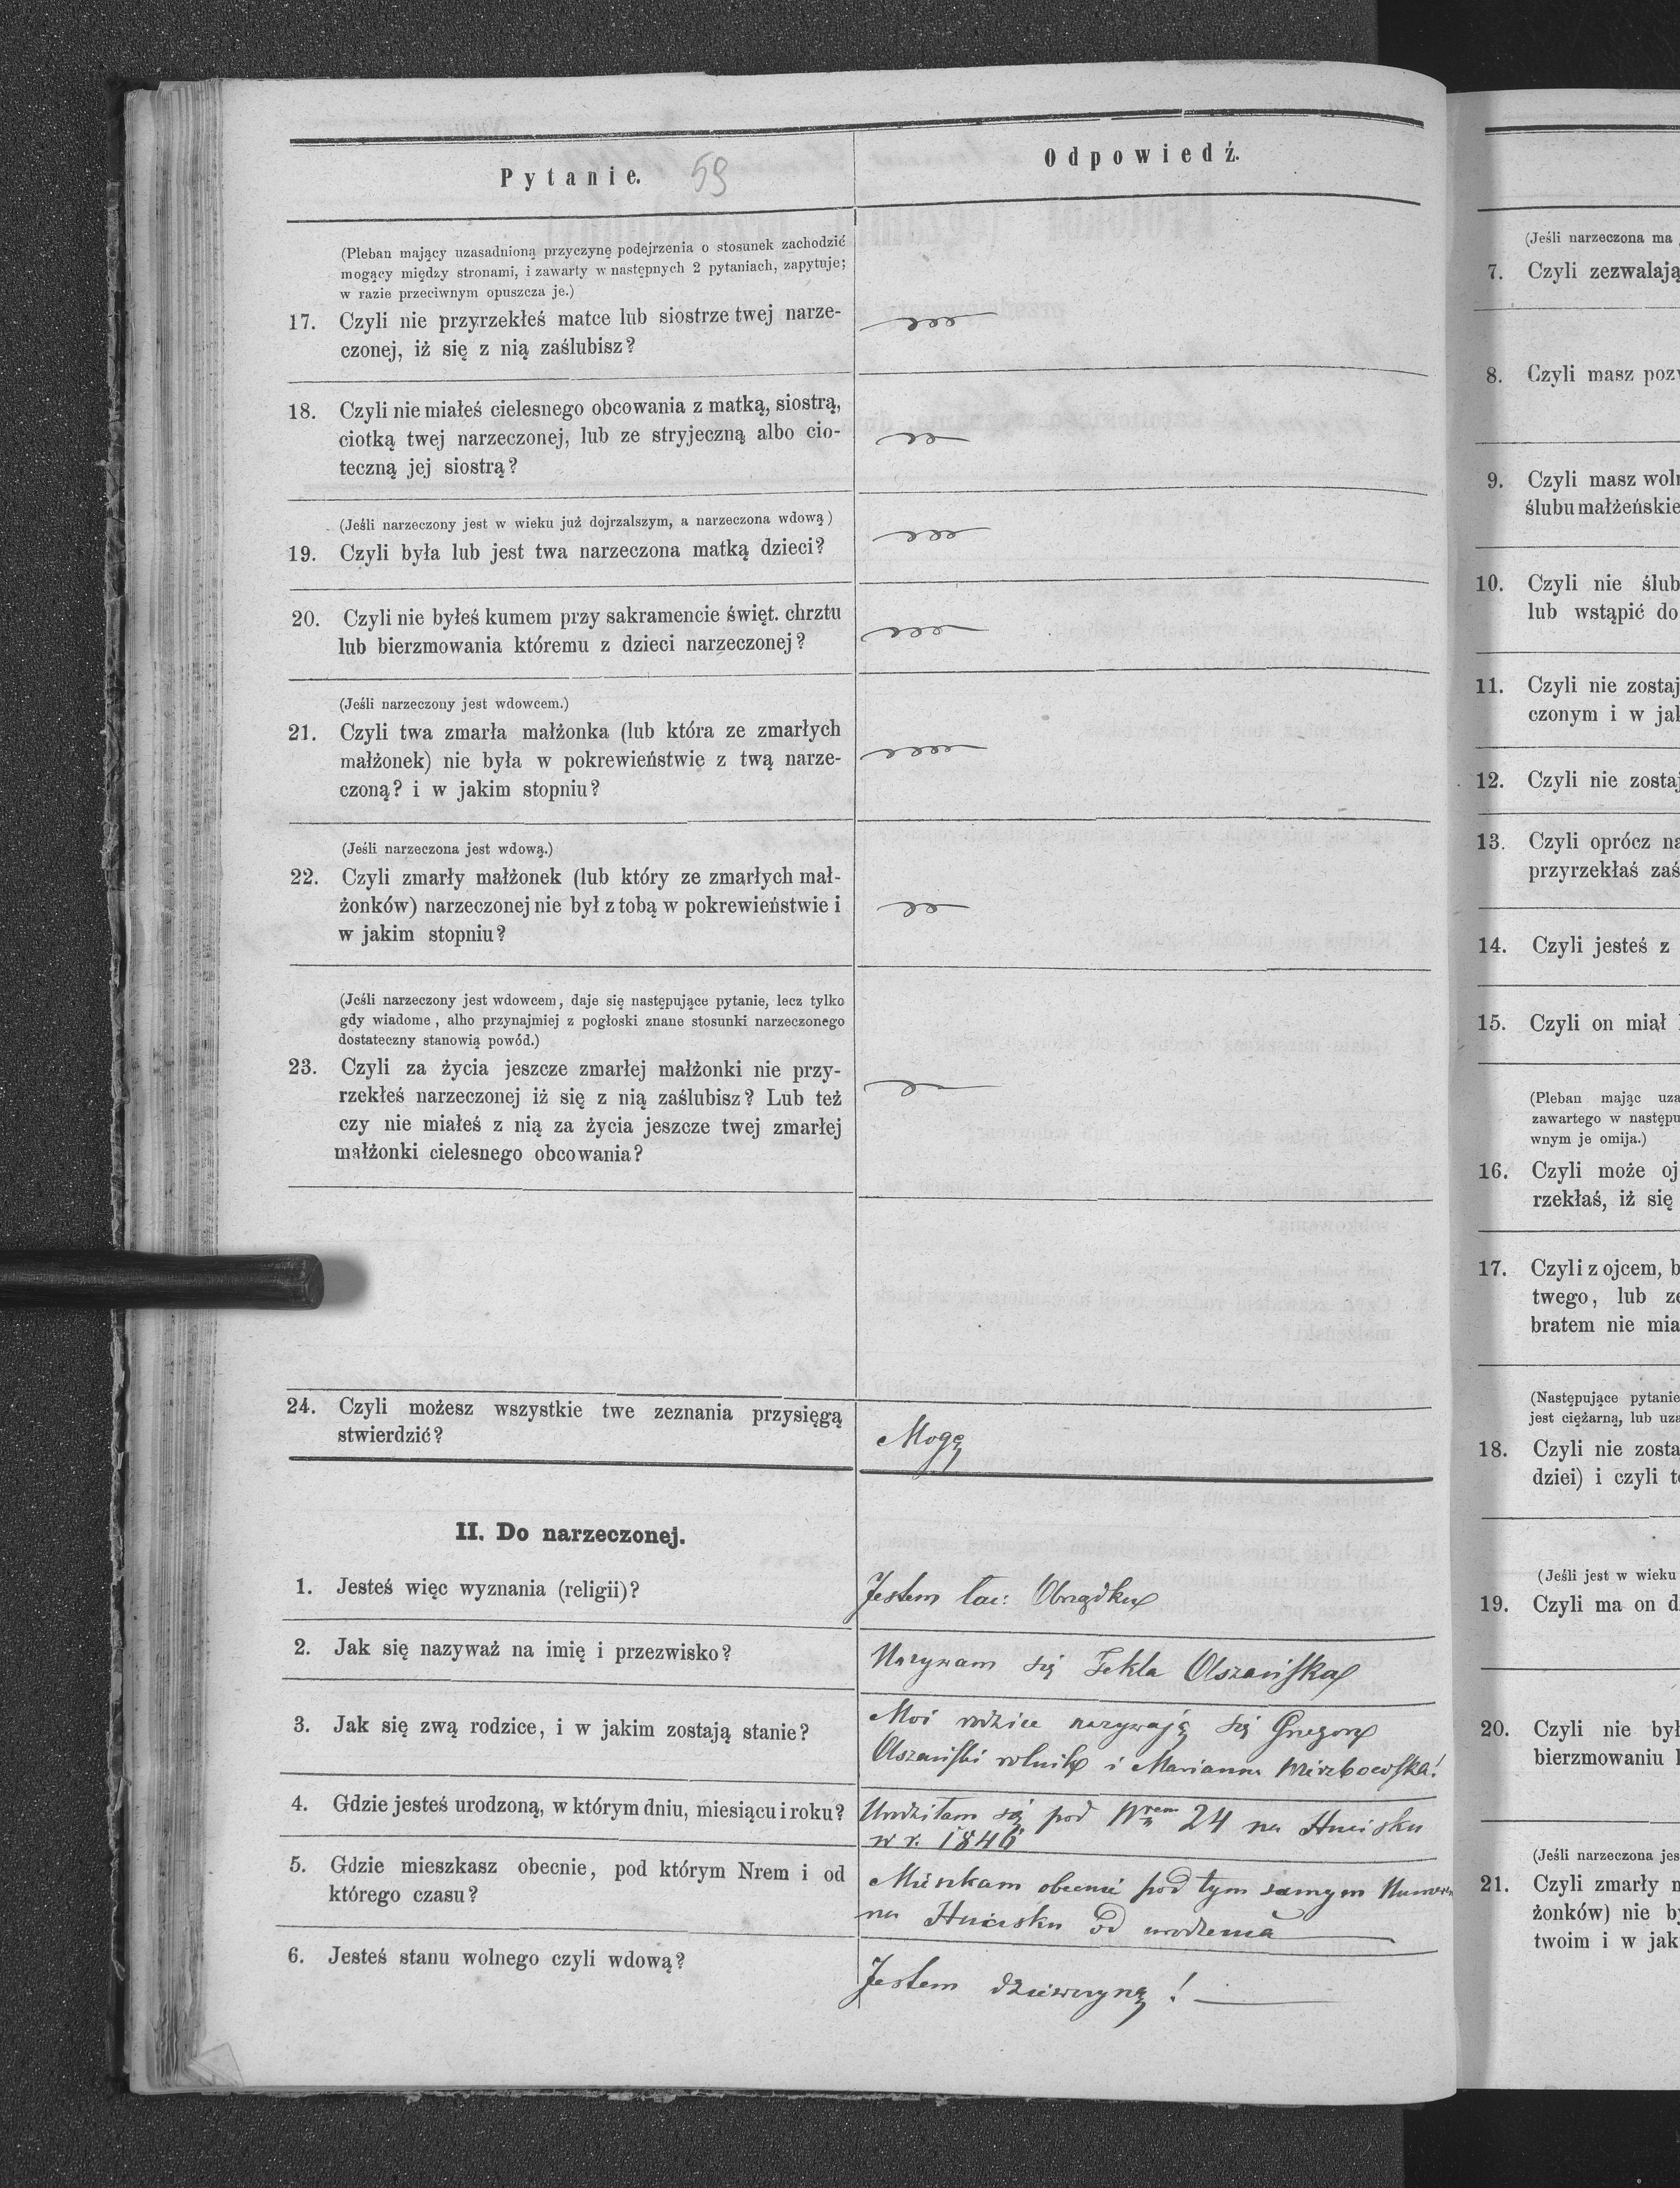 Pytanie. 59
Odpowiedź.
(Pleban mający uzasadnioną przyczynę podejrzenia o stosunek zachodzić
mogący między stronami, i zawarty w następnych 2 pytaniach, zapytuje;
w razie przeciwnym opuszcza je.)
17. Czyli nie przyrzekłeś matce lub siostrze twej narze-
czonej, iż się z nią zaślubisz?
18. Czyli nie miałeś cielesnego obcowania z matką, siostrą,
ciotką twej narzeczonej, lub ze stryjeczną albo cio-
teczną jej siostrą?
(Jeśli narzeczony jest w wieku już dojrzalszym, a narzeczona wdową)
19. Czyli była lub jest twa narzeczona matką dzieci?
20. Czyli nie byłeś kumem przy sakramencie święt. chrztu
lub bierzmowania któremu z dzieci narzeczonej?
(Jeśli narzeczony jest wdowcem.)
21. Czyli twa zmarła małżonka (lub która ze zmarłych
małżonek) nie była w pokrewieństwie z twą narze-
czoną? i w jakim stopniu?
(Jeśli narzeczona jest wdową.)
22. Czyli zmarły małżonek (lub który ze zmarłych mał-
żonków) narzeczonej nie był z tobą w pokrewieństwie i
w jakim stopniu?
(Jeśli narzeczony jest wdowcem, daje się następujące pytanie, lecz tylko
gdy wiadome, alho przynajmiej z pogłoski znane stosunki narzeczonego
dostateczny stanowią powód.)
23. Czyli za życia jeszcze zmarłej małżonki nie przy-
rzekłeś narzeczonej iż się z nią zaślubisz? Lub też
czy nie miałeś z nią za życia jeszcze twej zmarłej
małżonki cielesnego obcowania?
24. Czyli możesz wszystkie twe zeznania przysięgą
stwierdzić?
Mogę
II. Do narzeczonej.
1. Jesteś więc wyznania (religii)?
Jestem łac: Obrządku
2. Jak się nazyważ na imię i przezwisko?
Nazywam się Tekla Olszańska
3. Jak się zwą rodzice, i w jakim zostają stanie?
Moi rodzice nazywają się Grzegorz
Olszański rolnik i Marianna Wierzbowska!
4. Gdzie jesteś urodzoną, w którym dniu, miesiącu i roku?
Urodziłam się pod Nrem 24 na Hucisku
w r. 1846
5. Gdzie mieszkasz obecnie, pod którym Nrem i od
którego czasu?
Mieszkam obecnie pod tym samym Numerem
na Hucisku od urodzenia
6. Jesteś stanu wolnego czyli wdową?
Jestem dziewczyną!
(Jeśli narzeczona ma
7. Czyli zezwalają
8. Czyli masz pozw
9. Czyli masz woln
ślubu małżeńskie
10. Czyli nie ślub
lub wstąpić do
11. Czyli nie zostaj
czonym i w jak
12. Czyli nie zostaj
13. Czyli oprócz na
przyrzekłaś zaś
14. Czyli jesteś z
15. Czyli on miał
(Pleban mając uza
zawartego w następu
wnym je omija.)
16. Czyli może oj
rzekłaś, iż się
17. Czyli z ojcem, b
twego, lub ze
bratem nie mia
(Następujące pytanie
jest ciężarną, lub uza
18. Czyli nie zosta
dziei) i czyli te
(Jeśli jest w wieku
19. Czyli ma on d
20. Czyli nie był
bierzmowaniu
(Jeśli narzeczona jes
21. Czyli zmarły m
żonków) nie by
twoim i w jak